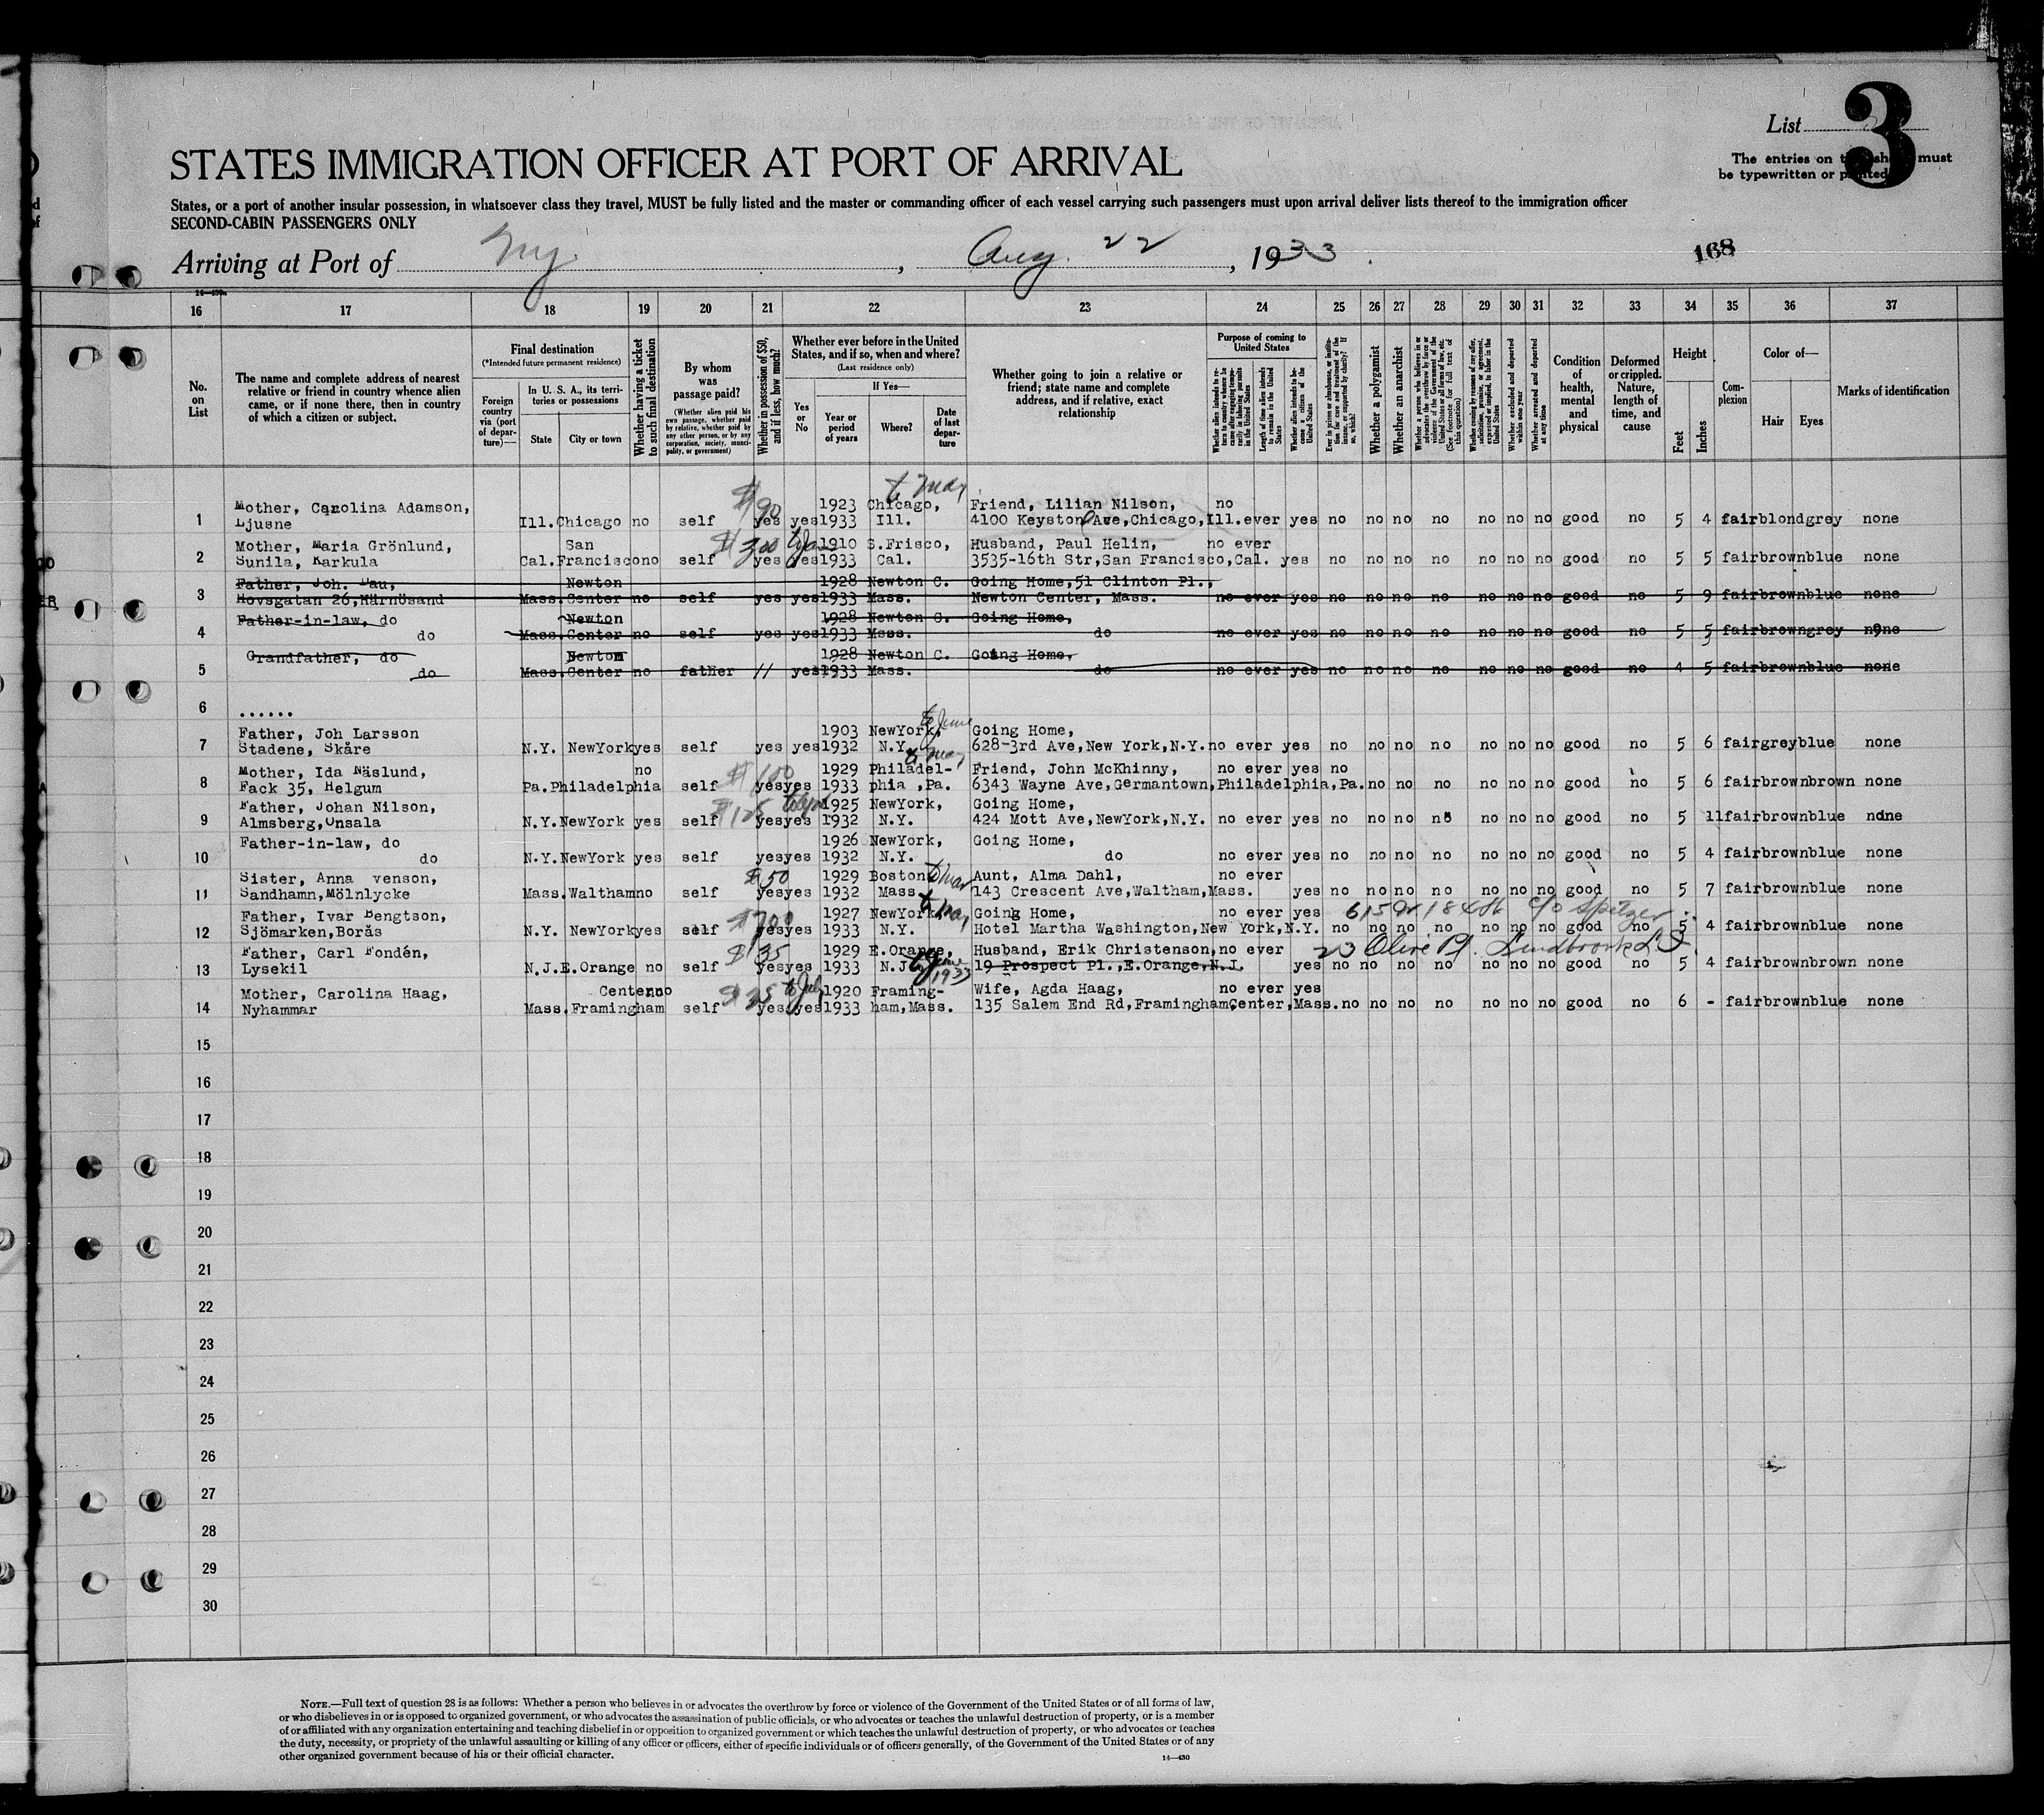 List 3
The entries on this sheet must
be typewritten or printed
STATES IMMIGRATION OFFICER AT PORT OF ARRIVAL
States, or a port of another insular possession, in whatsoever class they travel, MUST be fully listed and the master or commanding officer of each vessel carrying such passengers must upon arrival deliver lists thereof to the immigration officer
SECOND-CABIN PASSENGERS ONLY
Arriving at Port of NY , Aug. 22 , 1933
168
16 17 18 19 20 21 22 23 24 25 26 27 28 29 30 31 32 33 34 35 36 37
No. on List
The name and complete address of nearest relative or friend in country whence alien came, or if none there, then in country of which a citizen or subject.
Final destination
(*Intended future permanent residence)
Foreign country via (port of departure)—
In U. S. A., its territories or possessions
State
City or town
Whether having a ticket to such final destination
By whom was passage paid?
(Whether alien paid his own passage, whether paid by relative, whether paid by any other person, or by any corporation, society, municipality, or government)
Whether in possession of $50, and if less, how much?
Whether ever before in the United States, and if so, when and where?
(Last residence only)
Yes or No
If Yes—
Year or period of years
Where?
Date of last departure
Whether going to join a relative or friend; state name and complete address, and if relative, exact relationship
Purpose of coming to United States
Length of time alien intends to remain in the United States
Whether alien intends to become a citizen of the United States
Whether a polygamist
Whether an anarchist
Whether excluded and deported within one year
Whether arrested and deported at any time
Condition of health, mental and physical
Deformed or crippled. Nature, length of time, and cause
Height
Feet
Inches
Complexion
Color of—
Hair
Eyes
Marks of identification
Mother, Carolina Adamson, $90 1923 Chicago, to May Friend, Lilian Nilson, no
1 Ljusne Ill. Chicago no self yes yes 1933 Ill. 4100 Keystone Ave,Chicago,Ill. ever yes no no no no no no no good no 5 4 fair blond grey none
Mother, Maria Grönlund, San $300 to Jan 1910 S.Frisco, Husband, Paul Helin, no ever
2 Sunila, Karkula Cal. Francisco no self yes yes 1933 Cal. 3535-16th Str,San Francisco,Cal. yes no no no no no no no good no 5 5 fair brown blue none
Father, Joh. Dau, Newton 1928 Newton C. Going Home,51 Clinton Pl.,
3 Hovsgatan 26,Härnösand Mass. Center no self yes yes 1933 Mass. Newton Center, Mass. no ever yes no no no no no no no good no 5 9 fair brown blue none
Father-in-law, do Newton 1928 Newton C. Going Home,
4 do Mass. Center no self yes yes 1933 Mass. do no ever yes no no no no no no no good no 5 5 fair brown grey none
Grandfather, do Newton 1928 Newton C. Going Home,
5 do Mass. Center no father // yes 1933 Mass. do no ever yes no no no no no no no good no 4 5 fair brown blue none
6 ......
Father, Joh Larsson 1903 NewYork, to June Going Home,
7 Stadene, Skåre N.Y. NewYork yes self yes yes 1932 N.Y. 628-3rd Ave,New York,N.Y. no ever yes no no no no no no no good no 5 6 fair grey blue none
Mother, Ida Näslund, no $100 1929 Philadel- to May Friend, John McKhinny, no ever yes no
8 Fack 35, Helgum Pa. Philadelphia self yes yes 1933 phia ,Pa. 6343 Wayne Ave,Germantown,Philadelphia,Pa. no no no no no no good no 5 6 fair brown brown none
Father, Johan Nilson, $125 1925 NewYork, Going Home,
9 Almsberg,Onsala N.Y. NewYork yes self yes yes 1932 N.Y. 424 Mott Ave,NewYork,N.Y. no ever yes no no no no no no no good no 5 11 fair brown blue none
Father-in-law, do 1926 NewYork, Going Home,
10 do N.Y. NewYork yes self yes yes 1932 N.Y. do no ever yes no no no no no no no good no 5 4 fair brown blue none
Sister, Anna venson, $50 1929 Boston to Mar Aunt, Alma Dahl, no ever
11 Sandhamn,Mölnlycke Mass. Waltham no self yes yes 1932 Mass. 143 Crescent Ave,Waltham,Mass. yes no no no no no no no good no 5 7 fair brown blue none
Father, Ivar Bengtson, $700 1927 NewYork, to May Going Home, no ever yes 615 W 184th c/o Spitzer
12 Sjömarken,Borås N.Y. NewYork yes self yes yes 1933 N.Y. Hotel Martha Washington,New York,N.Y. no no no no no no no good no 5 4 fair brown blue none
Father, Carl Fondén, $35 1929 E.Orange, to June 1933 Husband, Erik Christenson, no ever 23 Olive Pl. Lindbrook L I.
13 Lysekil N.J. E.Orange no self yes yes 1933 N.J. 19 Prospect Pl.,E.Orange,N.J. yes no no no no no no no good no 5 4 fair brown brown none
Mother, Carolina Haag, Center no $25 to July 1920 Framing- Wife, Agda Haag, no ever yes
14 Nyhammar Mass. Framingham self yes yes 1933 ham,Mass. 135 Salem End Rd,Framingham,Center,Mass. no no no no no no no good no 6 - fair brown blue none
15
16
17
18
19
20
21
22
23
24
25
26
27
28
29
30
NOTE.—Full text of question 28 is as follows: Whether a person who believes in or advocates the overthrow by force or violence of the Government of the United States or of all forms of law,
or who disbelieves in or is opposed to organized government, or who advocates the assassination of public officials, or who advocates or teaches the unlawful destruction of property, or is a member
of or affiliated with any organization entertaining and teaching disbelief in or opposition to organized government or which teaches the unlawful destruction of property, or who advocates or teaches
the duty, necessity, or propriety of the unlawful assaulting or killing of any officer or officers, either of specific individuals or of officers generally, of the Government of the United States or of any
other organized government because of his or their official character.
14—430